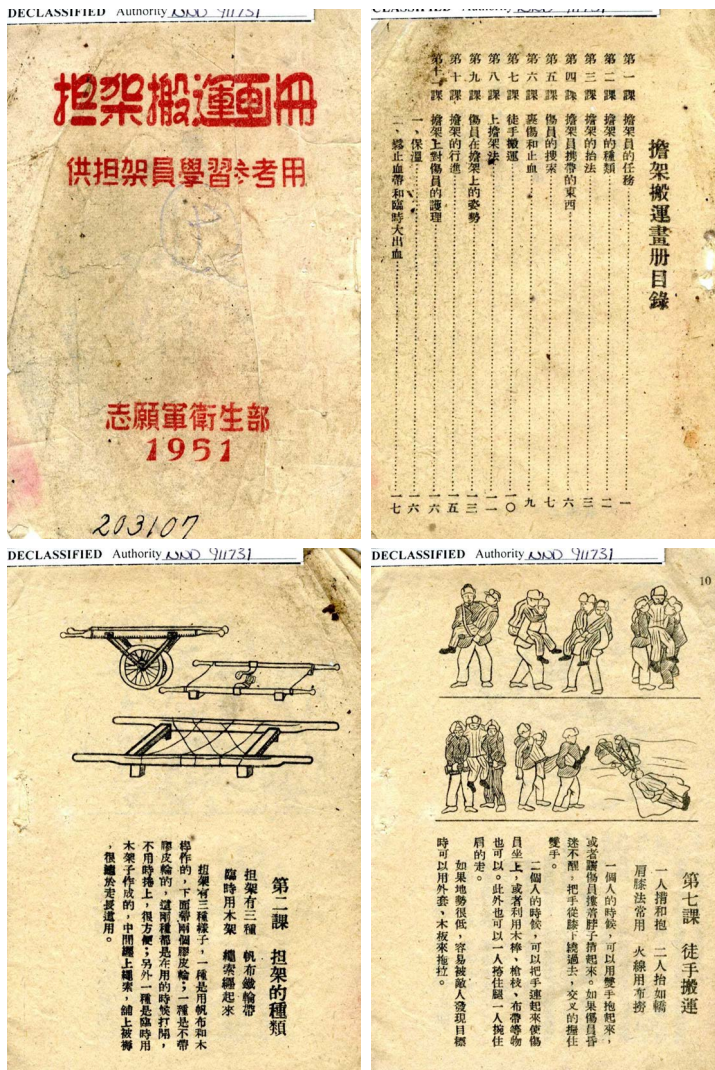 DECLASSIFIED Authority NND 911731
担架搬運画冊
供担架員學習参考用
志願軍衛生部
1951
203107
DECLASSIFIED Authority NND 911731
擔架搬運畫册目錄
第一課 擔架員的任務 一
第二課 擔架的種類 二
第三課 擔架的抬法 三
第四課 擔架員携帶的東西 六
第五課 傷員的搜索 七
第六課 裹傷和止血 九
第七課 徒手搬運 一〇
第八課 上擔架法 一一
第九課 傷員在擔架上的姿勢 一三
第十課 擔架的行進 一五
第十一課 擔架上對傷員的護理 一六
一、保溫 一六
二、鬆止血帶和臨時大出血 一七
DECLASSIFIED Authority NND 911731
第二課 担架的種類
担架有三種 帆布鐵輪帶
臨時用木架 繩索纏起來
担架有三種樣子，一種是用帆布和木
桿作的，下面帶兩個膠皮輪；一種是不帶
膠皮輪的，這兩種都是在用的時候打開，
不用時捲上，很方便；另外一種是臨時用
木架子作成的，中間纏上繩索，舖上被褥
，很適於走長道用。
DECLASSIFIED Authority NND 911731
10
第七課 徒手搬運
一人揹和抱 二人抬如轎
肩膝法常用 火線用布捞
一個人的時候，可以用雙手抱起來，
或者讓傷員摟着脖子揹起來。如果傷員昏
迷不醒，把手從膝下繞過去，交叉的撫住
雙手。
二個人的時候，可以把手連起來使傷
員坐上，或者利用木棒、槍枝、布帶等物
也可以。此外也可以一人捞住腿一人捥住
肩的走。
如果地勢很低，容易被敵人發現目標
時可以用外套、木板來拖拉。